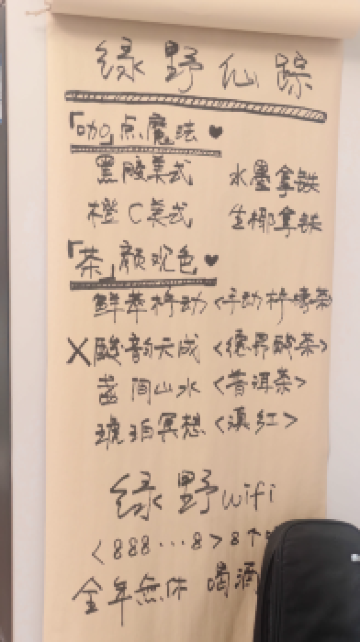 绿野仙踪
「咖」点魔法♥
黑胶美式 水墨拿铁
橙C美式 生椰拿铁
「茶」颜观色♥
鲜萃柠动<手动柠檬茶>
X酸韵天成<德昂酸茶>
齿间山水<普洱茶>
琥珀冥想<滇红>
绿野wifi
<888…8>8个
全年無休 喝酒